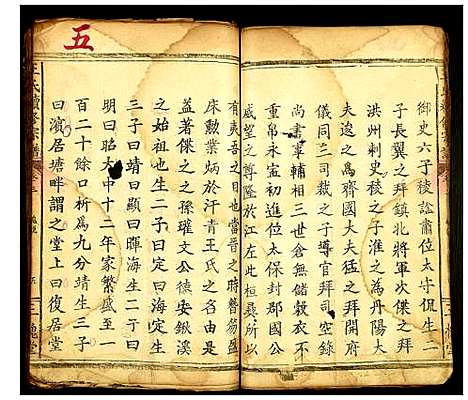 御史六子稜諡肅位太守侃生二
子長翼之拜鎮北將軍次傑之拜
洪州刺史稜之子淮之為丹陽大
夫逡之為齊國大夫猛之拜開府
儀同三司裁之子導官拜司空錄
尚書軍輔相三世倉無儲穀衣不
重帛永寧初進位太保封郡公
威望之尊隆於江左此桓彛所以
有夷吾之目也當晉之時簪笏盈
床勳業炳於汗青王氏之名由是
益著傑之之孫璀文公德安鍬溪
之始祖也生二子曰定曰海定生
三子曰靖曰顯曰暉海生二子曰
明曰昭大中十二年家繁盛至一
百二十餘口析為九分靖生三子
曰濵居塘畔謂之堂上曰復居堂
五
王氏續修宗譜
三槐堂